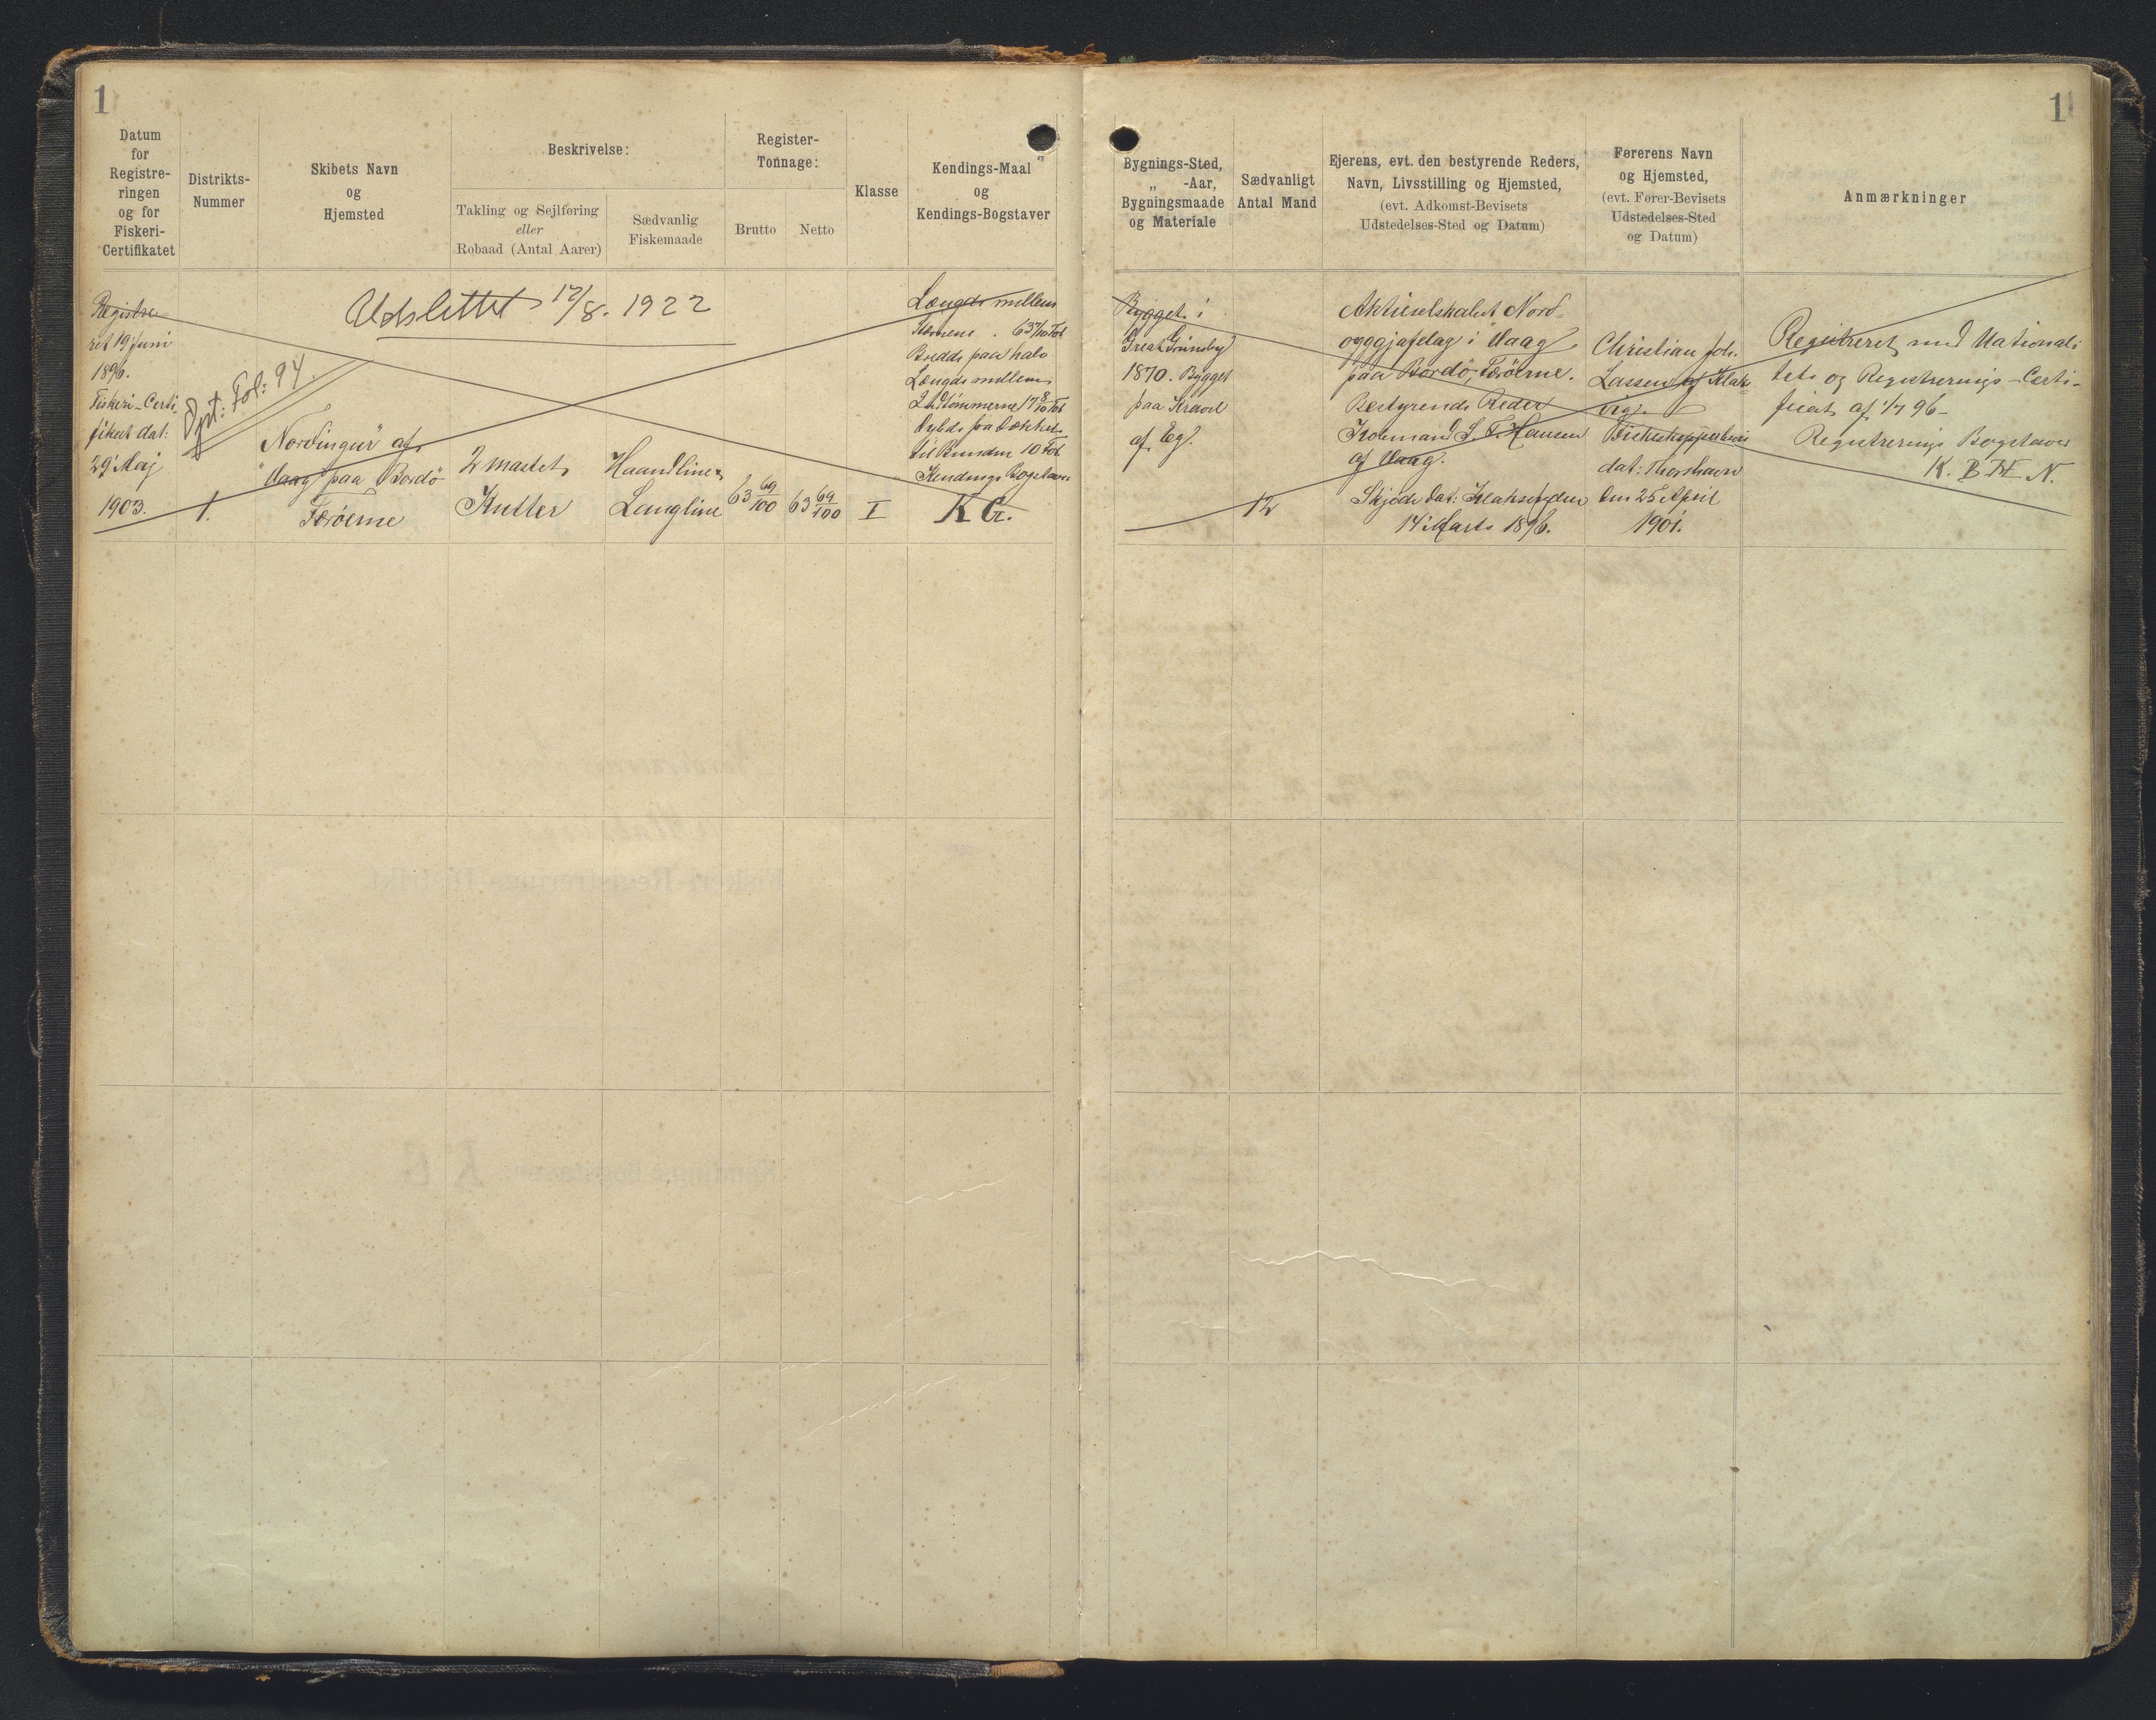 1
Datum
for
Registre-
ringen
og for
Fiskeri-
Certifikatet
Distrikts-
Nummer
Skibets Navn
og
Hjemsted
Beskrivelse:
Takling og Sejlføring
eller
Robaad (Antal Aarer)
Sædvanlig
Fiskemaade
Register-
Tonnage:
Brutto
Netto
Klasse
Kendings-Maal
og
Kendings-Bogstaver
Registre
ret 19 Juni
1896.
Fiskeri-Certi
fikat dat:
29 Maj
1903.
1.
Udslettet 12/8. 1922
Fol: 94.
Nordingur" af
Vaag paa Bordö
Færöerne
2 mastet
Kutter
Haandline
Langline
63 69/100
63 69/100
I
Længde mellem
Stævnene . 63 7/10 Fod
Bredde paa halv
Længde mellem
17 8/10 Fod
Dybde fra Dækket
til Bunden 10 Fod
Kendings Bogstaver
K G.
1
Bygnings-Sted,
„ -Aar,
Bygningsmaade
og Materiale
Sædvanligt
Antal Mand
Ejerens, evt. den bestyrende Reders,
Navn, Livsstilling og Hjemsted,
(evt. Adkomst-Bevisets
Udstedelses-Sted og Datum)
Førerens Navn
og Hjemsted,
(evt. Fører-Bevisets
Udstedelses-Sted
og Datum)
Anmærkninger
Bygget i
Great Grimsby
1870. Bygget
paa Kravel
af Eg.
12
Aktieselskabet Nord-
oyggjafelag i Vaag
paa Bordö, Færöerne.
Bestyrende Reder
Kolmand S. F. Hansen
af Vaag.
Skjöde dat: Klaksfjorden
14 Marts 1896.
Christian Joh.
Lassen af Klak
vig.
Fiskeskipperbevis
dat: Thorshavn
den 25 April
1901.
Registreret med Nationali
tets og Registrerings-Certi-
ficat af 1/7 96-
Registrerings Bogstaver
K. B. H. N.